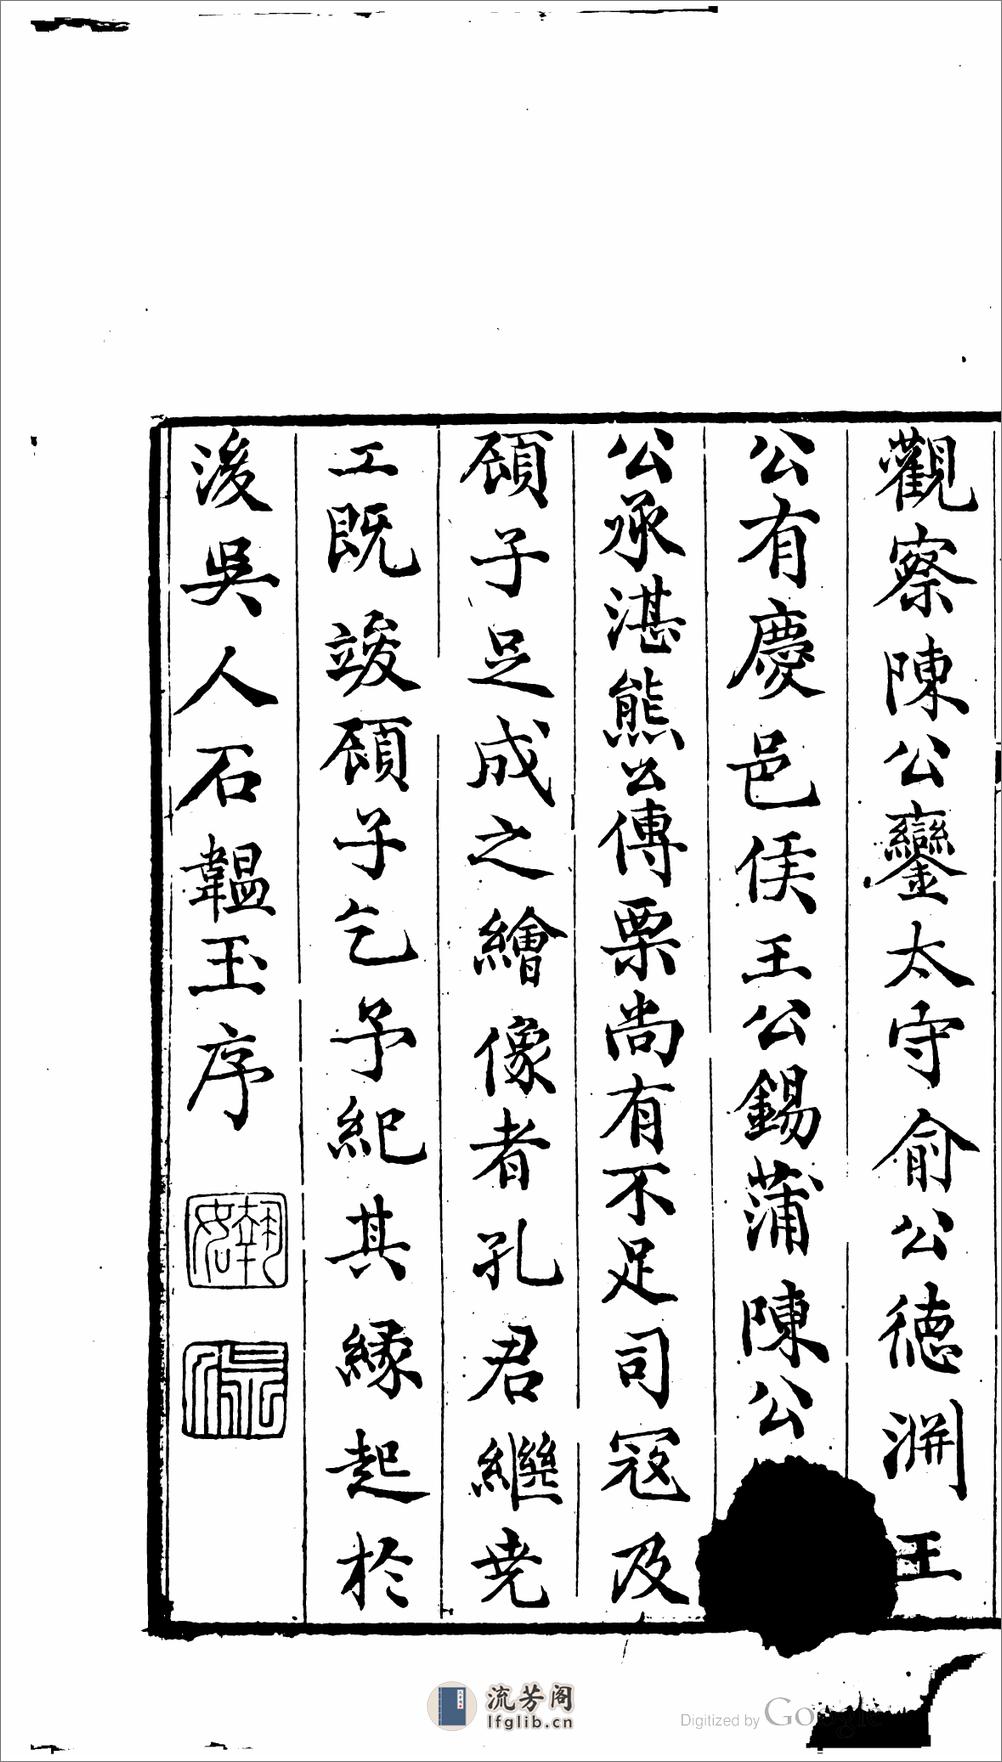 觀察陳公鑾太守俞公德渊王
公有慶邑侯王公錫蒲陳公
公承湛熊公傳栗尚有不足司冦及
顧子足成之繪像者孔君繼尭
工既竣顧子乞予紀其緣起於
後吳人石韞玉序
流芳阁
lfglib.cn
Digitized by Google